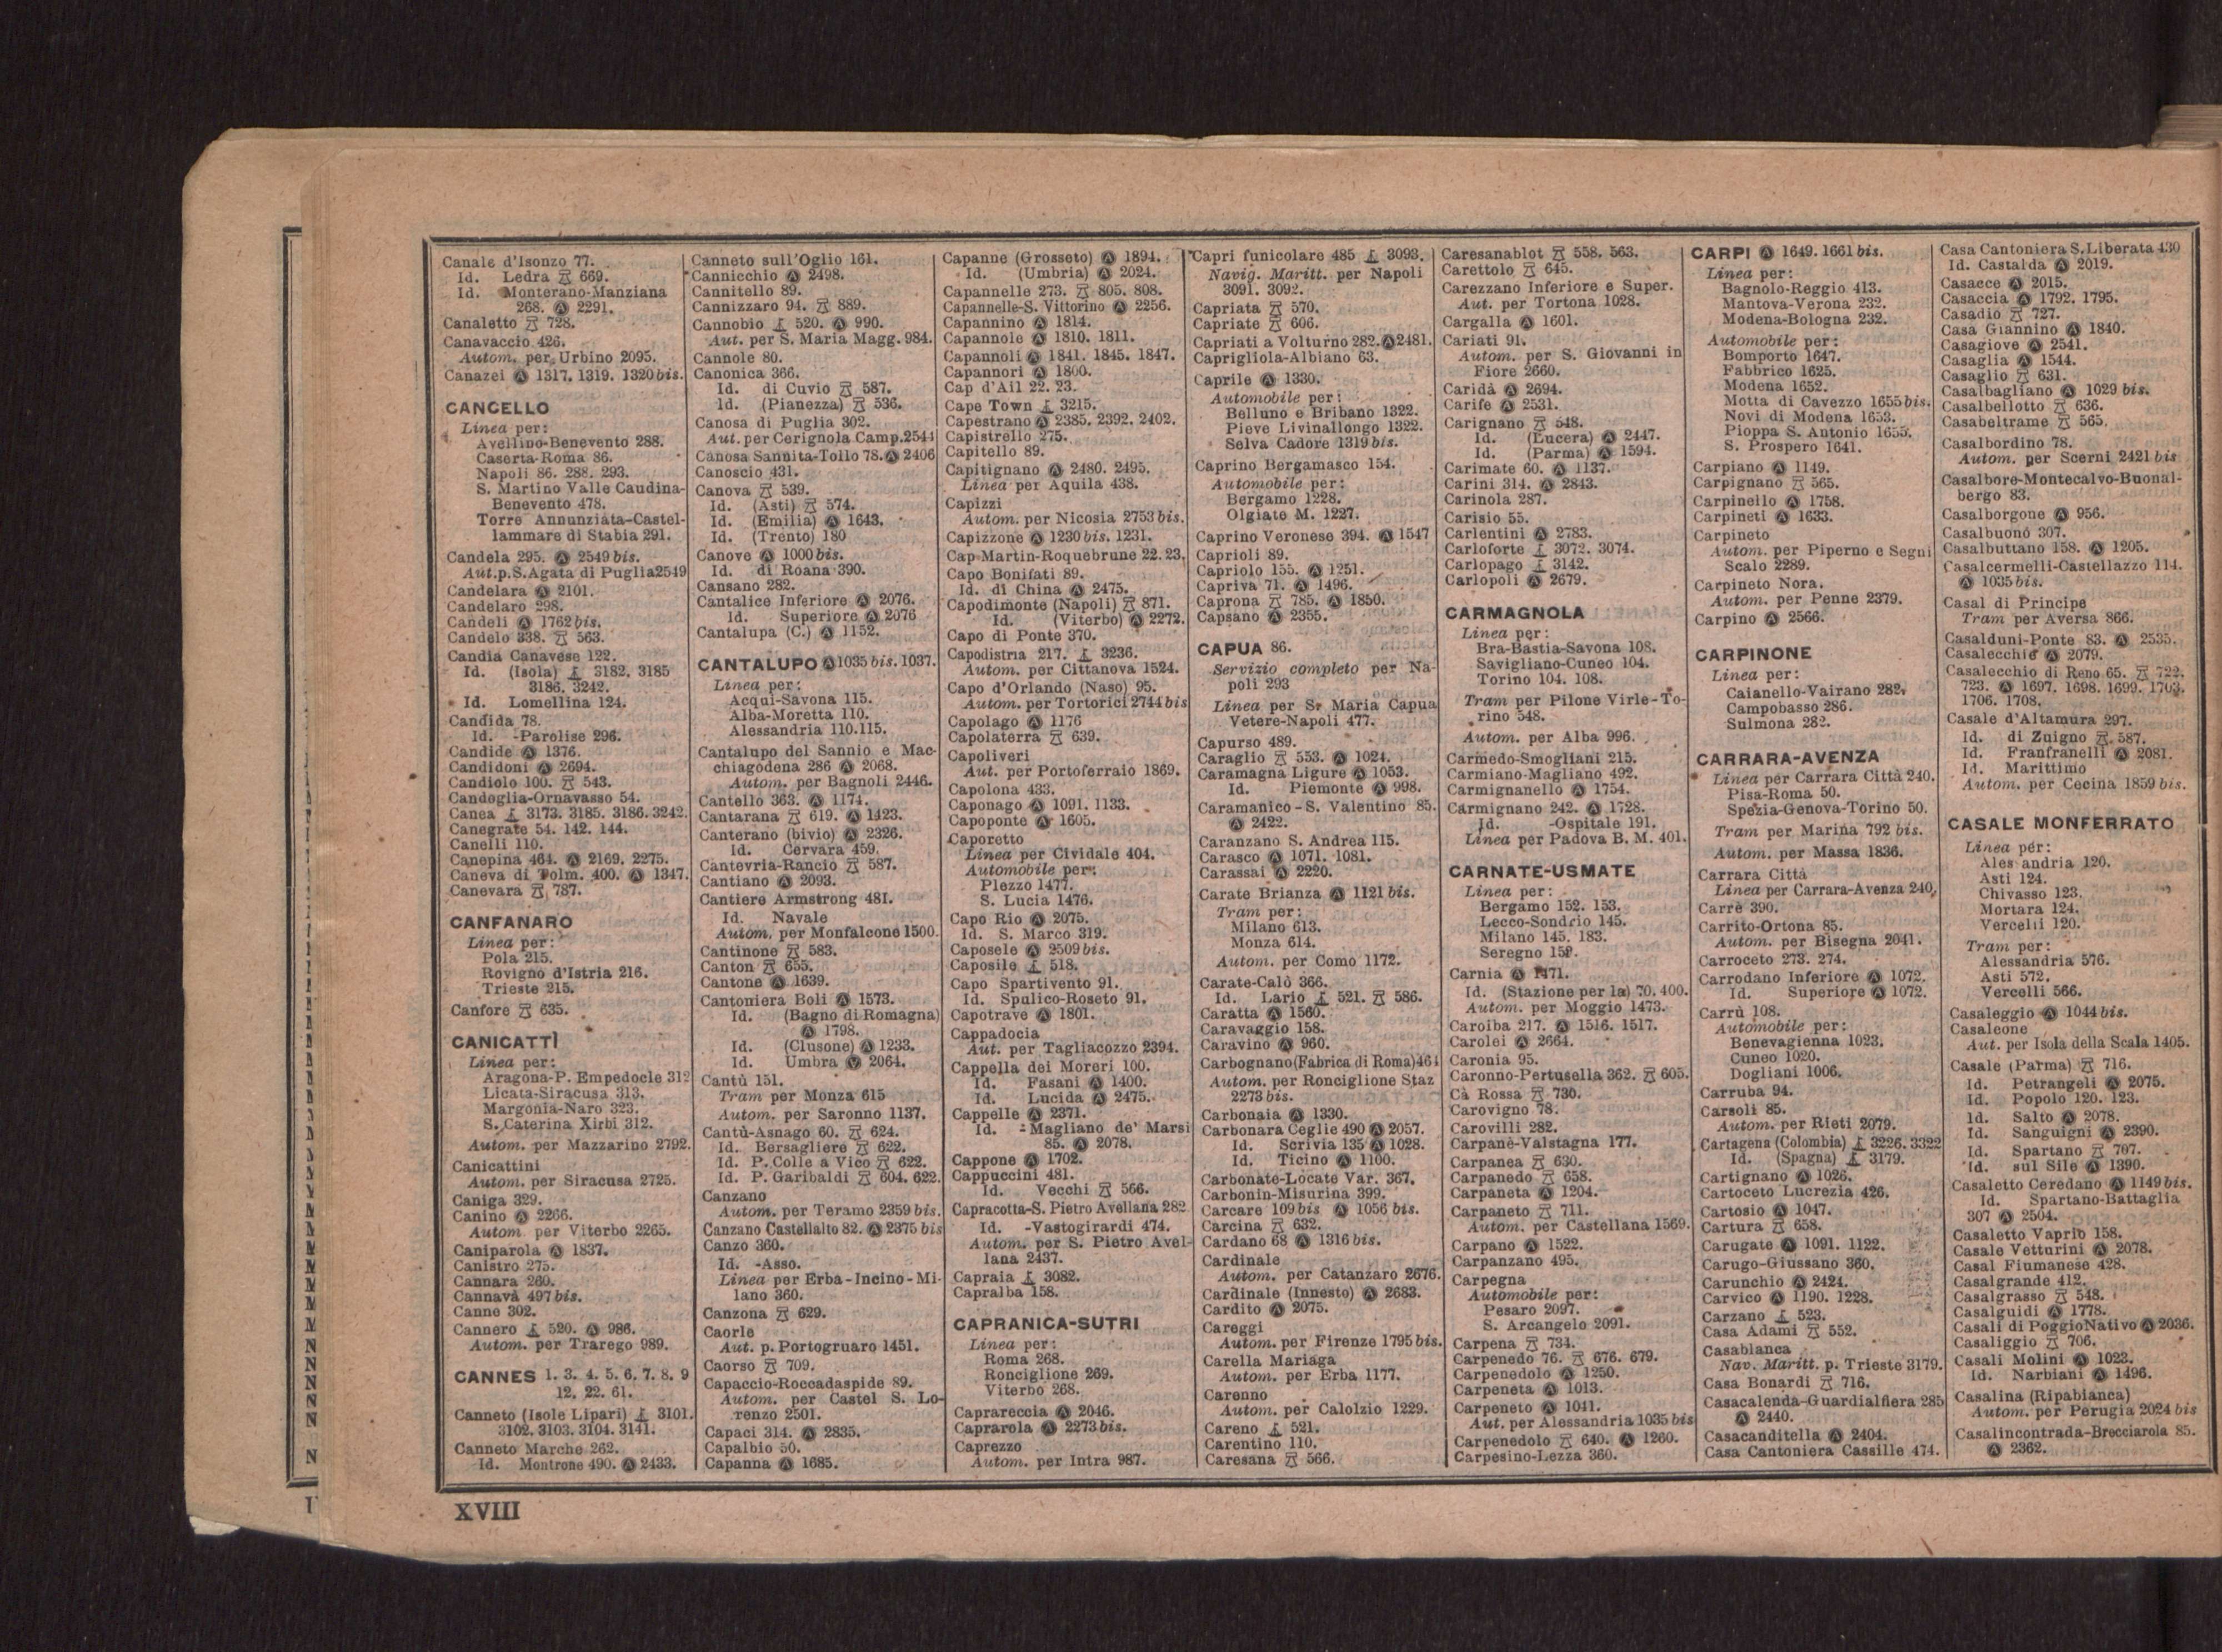 Canale d'Isonzo 77.
Id. Ledra 669.
Id. Monterano-Manziana
268. Ⓐ 2291.
Canaletto 728.
Canavaccio 426.
Autom. per Urbino 2095.
Canazei Ⓐ 1317. 1319. 1320 bis.
CANCELLO
Linea per:
Avellino-Benevento 288.
Caserta-Roma 86.
Napoli 86. 288. 293.
S. Martino Valle Caudina-
Benevento 478.
Torre Annunziata-Castel-
lammare di Stabia 291.
Candela 295. Ⓐ 2549 bis.
Aut.p.S.Agata di Puglia 2549
Candelara Ⓐ 2101.
Candelaro 298.
Candeli Ⓐ 1762 bis.
Candelo 338. 563.
Candia Canavese 122.
Id. (Isola) 3182. 3185
3186. 3242.
Id. Lomellina 124.
Candida 78.
Id. -Parolise 296.
Candide Ⓐ 1376.
Candidoni Ⓐ 2694.
Candiolo 100. 543.
Candoglia-Ornavasso 54.
Canea 3173. 3185. 3186. 3242.
Canegrate 54. 142. 144.
Canelli 110.
Canepina 464. Ⓐ 2169. 2275.
Caneva di Tolm. 400. Ⓐ 1347.
Canevara 787.
CANFANARO
Linea per:
Pola 215.
Rovigno d'Istria 216.
Trieste 215.
Canfore 635.
CANICATTÌ
Linea per:
Aragona-P. Empedocle 312
Licata-Siracusa 313.
Margonia-Naro 323.
S. Caterina Xirbi 312.
Autom. per Mazzarino 2792.
Canicattini
Autom. per Siracusa 2725.
Caniga 329.
Canino Ⓐ 2266.
Autom per Viterbo 2265.
Caniparola Ⓐ 1837.
Canistro 275.
Cannara 260.
Cannavà 497 bis.
Canne 302.
Cannero 520. Ⓐ 986.
Autom. per Trarego 989.
CANNES 1. 3. 4. 5. 6. 7. 8. 9
12. 22. 61.
Canneto (Isole Lipari) 3101.
3102. 3103. 3104. 3141.
Canneto Marche 262.
Id. Montrone 490. Ⓐ 2433.
Canneto sull'Oglio 161.
Cannicchio Ⓐ 2498.
Cannitello 89.
Cannizzaro 94. 889.
Cannobio 520. Ⓐ 990.
Aut. per S. Maria Magg. 984.
Cannole 80.
Canonica 366.
Id. di Cuvio 587.
Id. (Pianezza) 536.
Canosa di Puglia 302.
Aut. per Cerignola Camp. 2544
Canosa Sannita-Tollo 78. Ⓐ 2406
Canoscio 431.
Canova 539.
Id. (Asti) 574.
Id. (Emilia) Ⓐ 1643.
Id. (Trento) 180
Canove Ⓐ 1000 bis.
Id. di Roana 390.
Cansano 282.
Cantalice Inferiore Ⓐ 2076.
Id. Superiore Ⓐ 2076
Cantalupa (C.) Ⓐ 1152.
CANTALUPO Ⓐ 1035 bis. 1037.
Linea per:
Acqui-Savona 115.
Alba-Moretta 110.
Alessandria 110.115.
Cantalupo del Sannio e Mac-
chiagodena 286 Ⓐ 2068.
Autom. per Bagnoli 2446.
Cantello 363. Ⓐ 1174.
Cantarana 619. Ⓐ 1423.
Canterano (bivio) Ⓐ 2326.
Id. Cervara 459.
Cantevria-Rancio 587.
Cantiano Ⓐ 2093.
Cantiere Armstrong 481.
Id. Navale
Autom. per Monfalcone 1500.
Cantinone 583.
Canton 655.
Cantone Ⓐ 1639.
Cantoniera Boli Ⓐ 1573.
Id. (Bagno di Romagna)
Ⓐ 1798.
Id. (Clusone) Ⓐ 1233.
Id. Umbra Ⓐ 2064.
Cantù 151.
Tram per Monza 615
Autom. per Saronno 1137.
Cantù-Asnago 60. 624.
Id. Bersagliere 622.
Id. P. Colle a Vico 622.
Id. P. Garibaldi 604. 622.
Canzano
Autom. per Teramo 2359 bis.
Canzano Castellalto 82. Ⓐ 2375 bis
Canzo 360.
Id. -Asso.
Linea per Erba-Incino-Mi-
lano 360.
Canzona 629.
Caorle
Aut. p. Portogruaro 1451.
Caorso 709.
Capaccio-Roccadaspide 89.
Autom. per Castel S. Lo-
renzo 2501.
Capaci 314. Ⓐ 2835.
Capalbio 50.
Capanna Ⓐ 1685.
Capanne (Grosseto) Ⓐ 1894.
Id. (Umbria) Ⓐ 2024.
Capannelle 273. 805. 808.
Capannelle-S. Vittorino Ⓐ 2256.
Capannino Ⓐ 1814.
Capannole Ⓐ 1810. 1811.
Capannoli Ⓐ 1841. 1845. 1847.
Capannori Ⓐ 1800.
Cap d'Ail 22. 23.
Cape Town 3215.
Capestrano Ⓐ 2385. 2392. 2402.
Capistrello 275.
Capitello 89.
Capitignano Ⓐ 2480. 2495.
Linea per Aquila 438.
Capizzi
Autom. per Nicosia 2753 bis.
Capizzone Ⓐ 1230 bis. 1231.
Cap Martin-Roquebrune 22. 23.
Capo Bonifati 89.
Id. di China Ⓐ 2475.
Capodimonte (Napoli) 871.
Id. (Viterbo) Ⓐ 2272.
Capo di Ponte 370.
Capodistria 217. 3236.
Autom. per Cittanova 1524.
Capo d'Orlando (Naso) 95.
Autom. per Tortorici 2744 bis
Capolago Ⓐ 1176
Capolaterra 639.
Capoliveri
Aut. per Portoferraio 1869.
Capolona 433.
Caponago Ⓐ 1091. 1133.
Capoponte Ⓐ 1605.
Caporetto
Linea per Cividale 404.
Automobile per:
Plezzo 1477.
S. Lucia 1476.
Capo Rio Ⓐ 2075.
Id. S. Marco 319.
Caposele Ⓐ 2509 bis.
Caposile 518.
Capo Spartivento 91.
Id. Spulico-Roseto 91.
Capotrave Ⓐ 1801.
Cappadocia
Aut. per Tagliacozzo 2394.
Cappella dei Moreri 100.
Id. Fasani Ⓐ 1400.
Id. Lucida Ⓐ 2475.
Cappelle Ⓐ 2371.
Id. -Magliano de' Marsi
85. Ⓐ 2078.
Cappone Ⓐ 1702.
Cappuccini 481.
Id. Vecchi 566.
Capracotta-S. Pietro Avellana 282
Id. -Vastogirardi 474.
Autom. per S. Pietro Avel-
lana 2437.
Capraia 3082.
Capralba 158.
CAPRANICA-SUTRI
Linea per:
Roma 268.
Ronciglione 269.
Viterbo 268.
Caprareccia Ⓐ 2046.
Caprarola Ⓐ 2273 bis.
Caprezzo
Autom. per Intra 987.
Capri funicolare 485 3093.
Navig. Maritt. per Napoli
3091. 3092.
Capriata 570.
Capriate 606.
Capriati a Volturno 282. Ⓐ 2481.
Caprigliola-Albiano 63.
Caprile Ⓐ 1330.
Automobile per:
Belluno e Bribano 1322.
Pieve Livinallongo 1322.
Selva Cadore 1319 bis.
Caprino Bergamasco 154.
Automobile per:
Bergamo 1228.
Olgiate M. 1227.
Caprino Veronese 394. Ⓐ 1547
Caprioli 89.
Capriolo 155. Ⓐ 1251.
Capriva 71. Ⓐ 1496.
Caprona 785. Ⓐ 1850.
Capsano Ⓐ 2355.
CAPUA 86.
Servizio completo per Na-
poli 293
Linea per S. Maria Capua
Vetere-Napoli 477.
Capurso 489.
Caraglio 553. Ⓐ 1024.
Caramagna Ligure Ⓐ 1053.
Id. Piemonte Ⓐ 998.
Caramanico-S. Valentino 85.
Ⓐ 2422.
Caranzano S. Andrea 115.
Carasco Ⓐ 1071. 1081.
Carassai Ⓐ 2220.
Carate Brianza Ⓐ 1121 bis.
Tram per:
Milano 613.
Monza 614.
Autom. per Como 1172.
Carate-Calò 366.
Id. Lario 521. 586.
Caratta Ⓐ 1560.
Caravaggio 158.
Caravino Ⓐ 960.
Carbognano (Fabrica di Roma) 464
Autom. per Ronciglione Staz
2273 bis.
Carbonaia Ⓐ 1330.
Carbonara Ceglie 490 Ⓐ 2057.
Id. Scrivia 135 Ⓐ 1028.
Id. Ticino Ⓐ 1100.
Carbonate-Locate Var. 367.
Carbonin-Misurina 399.
Carcare 109 bis Ⓐ 1056 bis.
Carcina 632.
Cardano 68 Ⓐ 1316 bis.
Cardinale
Autom. per Catanzaro 2676.
Cardinale (Innesto) Ⓐ 2683.
Cardito Ⓐ 2075.
Careggi
Autom. per Firenze 1795 bis.
Carella Mariaga
Autom. per Erba 1177.
Carenno
Autom. per Calolzio 1229.
Careno 521.
Carentino 110.
Caresana 566.
Caresanablot 558. 563.
Carettolo 645.
Carezzano Inferiore e Super.
Aut. per Tortona 1028.
Cargalla Ⓐ 1601.
Cariati 91.
Autom. per S. Giovanni in
Fiore 2660.
Caridà Ⓐ 2694.
Carife Ⓐ 2531.
Carignano 548.
Id. (Lucera) Ⓐ 2447.
Id. (Parma) Ⓐ 1594.
Carimate 60. Ⓐ 1137.
Carini 314. Ⓐ 2843.
Carinola 287.
Carisio 55.
Carlentini Ⓐ 2783.
Carloforte 3072. 3074.
Carlopago 3142.
Carlopoli Ⓐ 2679.
CARMAGNOLA
Linea per:
Bra-Bastia-Savona 108.
Savigliano-Cuneo 104.
Torino 104. 108.
Tram per Pilone Virle-To-
rino 548.
Autom. per Alba 996.
Carmedo-Smogliani 215.
Carmiano-Magliano 492.
Carmignanello Ⓐ 1754.
Carmignano 242. Ⓐ 1728.
Id. -Ospitale 191.
Linea per Padova B. M. 401.
CARNATE-USMATE
Linea per:
Bergamo 152. 153.
Lecco-Sondrio 145.
Milano 145. 183.
Seregno 159.
Carnia Ⓐ 1471.
Id. (Stazione per la) 70. 400.
Autom. per Moggio 1473.
Caroiba 217. Ⓐ 1516. 1517.
Carolei Ⓐ 2664.
Caronia 95.
Caronno-Pertusella 362. 605.
Cà Rossa 730.
Carovigno 78.
Carovilli 282.
Carpanè-Valstagna 177.
Carpanea 630.
Carpanedo 658.
Carpaneta Ⓐ 1204.
Carpaneto 711.
Autom. per Castellana 1569.
Carpano Ⓐ 1522.
Carpanzano 495.
Carpegna
Automobile per:
Pesaro 2097.
S. Arcangelo 2091.
Carpena 734.
Carpenedo 76. 676. 679.
Carpenedolo Ⓐ 1250.
Carpeneta Ⓐ 1013.
Carpeneto Ⓐ 1041.
Aut. per Alessandria 1035 bis
Carpenedolo 640. Ⓐ 1260.
Carpesino-Lezza 360.
CARPI Ⓐ 1649. 1661 bis.
Linea per:
Bagnolo-Reggio 413.
Mantova-Verona 232.
Modena-Bologna 232.
Automobile per:
Bomporto 1647.
Fabbrico 1625.
Modena 1652.
Motta di Cavezzo 1655 bis.
Novi di Modena 1653.
Pioppa S. Antonio 1655.
S. Prospero 1641.
Carpiano Ⓐ 1149.
Carpignano 565.
Carpinello Ⓐ 1758.
Carpineti Ⓐ 1633.
Carpineto
Autom. per Piperno e Segni
Scalo 2289.
Carpineto Nora.
Autom. per Penne 2379.
Carpino Ⓐ 2566.
CARPINONE
Linea per:
Caianello-Vairano 282.
Campobasso 286.
Sulmona 282.
CARRARA-AVENZA
Linea per Carrara Città 240.
Pisa-Roma 50.
Spezia-Genova-Torino 50.
Tram per Marina 792 bis.
Autom. per Massa 1836.
Carrara Città
Linea per Carrara-Avenza 240.
Carrè 390.
Carrito-Ortona 85.
Autom. per Bisegna 2041.
Carroceto 273. 274.
Carrodano Inferiore Ⓐ 1072.
Id. Superiore Ⓐ 1072.
Carrù 108.
Automobile per:
Benevagienna 1023.
Cuneo 1020.
Dogliani 1006.
Carruba 94.
Carsoli 85.
Autom. per Rieti 2079.
Cartagena (Colombia) 3226. 3322
Id. (Spagna) 3179.
Cartignano Ⓐ 1026.
Cartoceto Lucrezia 426.
Cartosio Ⓐ 1047.
Cartura 658.
Carugate Ⓐ 1091. 1122.
Carugo-Giussano 360.
Carunchio Ⓐ 2424.
Carvico Ⓐ 1190. 1228.
Carzano 523.
Casa Adami 552.
Casablanca
Nav. Maritt. p. Trieste 3179.
Casa Bonardi 716.
Casacalenda-Guardialfiera 285
Ⓐ 2440.
Casacanditella Ⓐ 2404.
Casa Cantoniera Cassille 474.
Casa Cantoniera S. Liberata 430
Id. Castalda Ⓐ 2019.
Casacce Ⓐ 2015.
Casaccia Ⓐ 1792. 1795.
Casadio 727.
Casa Giannino Ⓐ 1840.
Casagiove Ⓐ 2541.
Casaglia Ⓐ 1544.
Casaglio 631.
Casalbagliano Ⓐ 1029 bis.
Casalbellotto 636.
Casabeltrame 565.
Casalbordino 78.
Autom. per Scerni 2421 bis
Casalbore-Montecalvo-Buonal-
bergo 83.
Casalborgone Ⓐ 956.
Casalbuono 307.
Casalbuttano 158. Ⓐ 1205.
Casalcermelli-Castellazzo 114.
Ⓐ 1035 bis.
Casal di Principe
Tram per Aversa 866.
Casalduni-Ponte 83. Ⓐ 2535.
Casalecchie Ⓐ 2079.
Casalecchio di Reno 65. 722.
723. Ⓐ 1697. 1698. 1699. 1703.
1706. 1708.
Casale d'Altamura 297.
Id. di Zuigno 587.
Id. Franfranelli Ⓐ 2081.
Id. Marittimo
Autom. per Cecina 1859 bis.
CASALE MONFERRATO
Linea per:
Ales andria 120.
Asti 124.
Chivasso 123.
Mortara 124.
Vercelli 120.
Tram per:
Alessandria 576.
Asti 572.
Vercelli 566.
Casaleggio Ⓐ 1044 bis.
Casaleone
Aut. per Isola della Scala 1405.
Casale (Parma) 716.
Id. Petrangeli Ⓐ 2075.
Id. Popolo 120. 123.
Id. Salto Ⓐ 2078.
Id. Sanguigni Ⓐ 2390.
Id. Spartano 707.
Id. sul Sile Ⓐ 1390.
Casaletto Ceredano Ⓐ 1149 bis.
Id. Spartano-Battaglia
307 Ⓐ 2504.
Casaletto Vaprio 158.
Casale Vetturini Ⓐ 2078.
Casal Fiumanese 428.
Casalgrande 412.
Casalgrasso 548.
Casalguidi Ⓐ 1778.
Casali di Poggio Nativo Ⓐ 2036.
Casaliggio 706.
Casali Molini Ⓐ 1023.
Id. Narbiani Ⓐ 1496.
Casalina (Ripabianca)
Autom. per Perugia 2024 bis
Casalincontrada-Brecciarola 85.
Ⓐ 2362.
XVIII